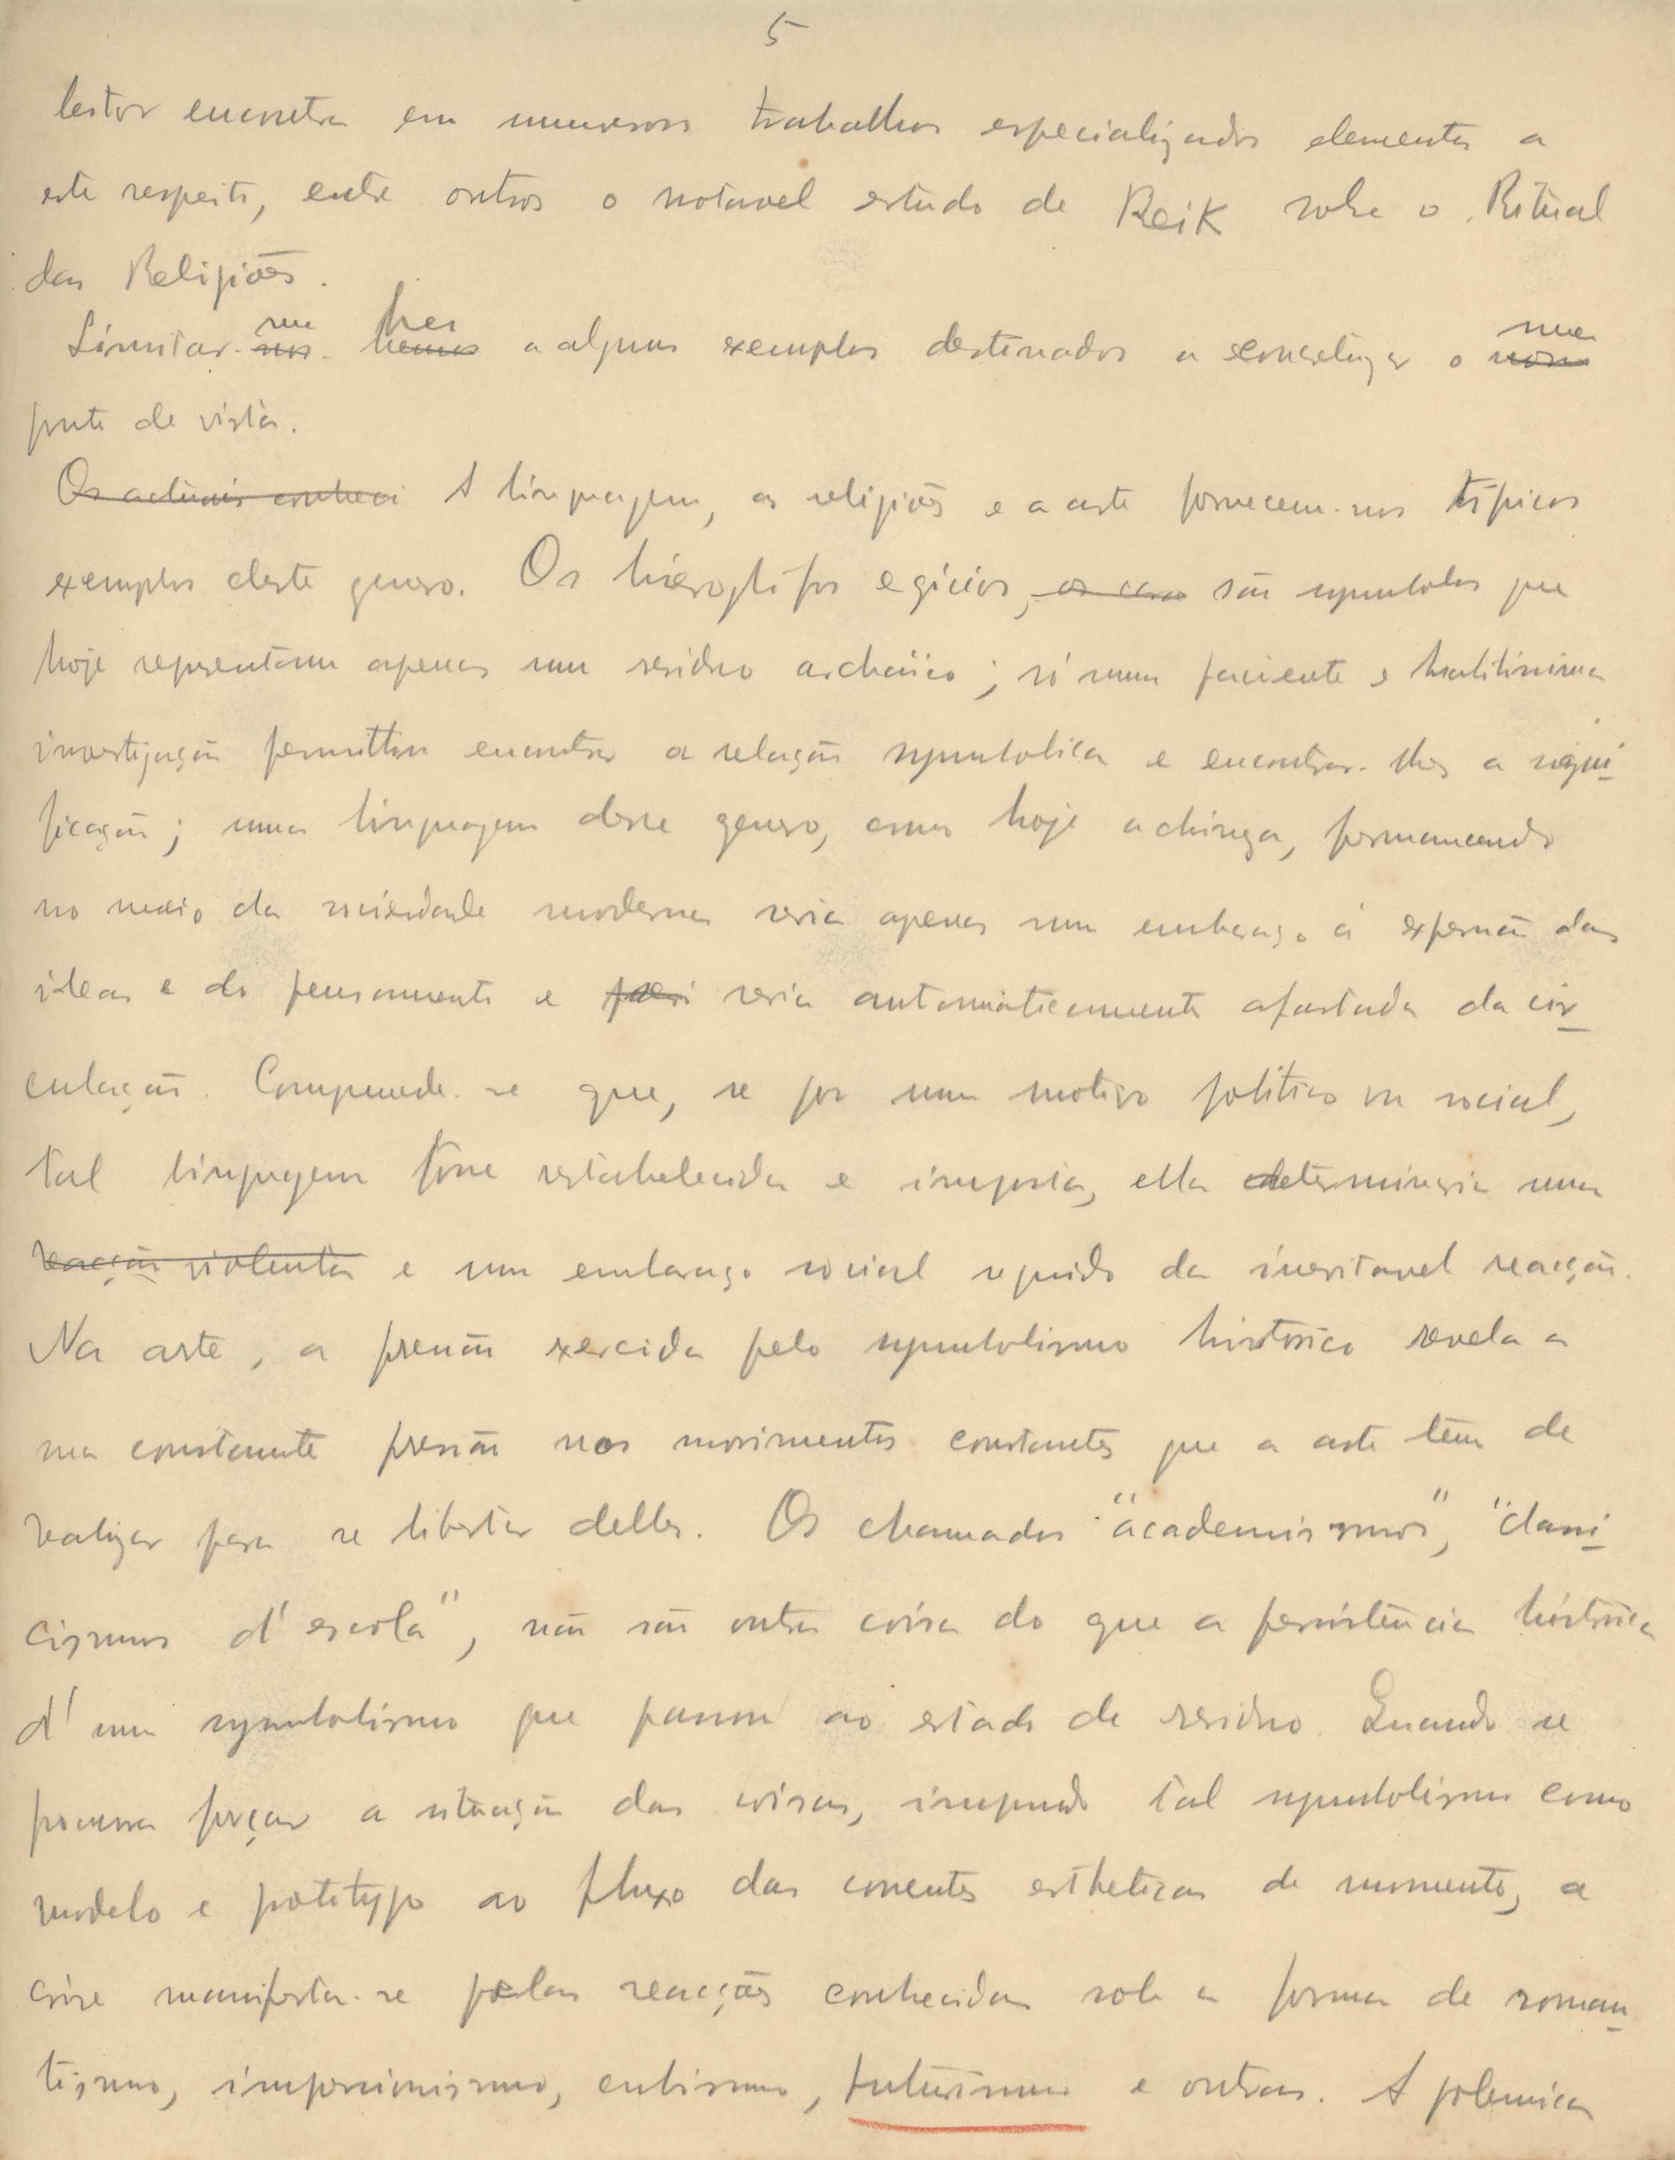 5
leitor encontra em numerosos trabalhos especializados elementos a
este respeito, entre outros o notavel estudo de Reik sobre o Ritual
das Religiões.
Limitar-me hei a alguns exemplos destinados a concretizar o meu
ponto de vista.
Os actuais conheci A linguagem, as religiões e a arte fornecem-nos tipicos
exemplos deste genero. Os hieroglifos egicios, são symbolos que
hoje representam apenas um residuo archaïco; só numa paciente e habilissima
investigação permittiu encontrar a relação symbolica e encontrar-lhes a signi-
ficação; uma linguagem desse genero, como hoje a chineza, permanecendo
no meio da sociedade moderna seria apenas um embaraço á expansão das
ideas e do pensamento e seria automaticamente afastada da cir-
culação. Comprehende-se que, se por um motivo politico ou social,
tal linguagem fosse restabelecida e imposta, ella determinaria uma
reacção violenta e um embaraço social seguido da inevitavel reacção.
Na arte, a pressão exercida pelo symbolismo historico revela a
sua constante pressão nos movimentos constantes que a arte tem de
realizar para se libertar delles. Os chamados "academismos", "classi-
cismos d'escola", não são outra coisa do que a persistencia historica
d'um symbolismo que passou ao estado de residuo. Quando se
procura forçar a situação das coisas, impondo tal symbolismo como
modelo e prototypo ao fluxo das correntes estheticas do momento, a
crise manifesta-se pelas reacções conhecidas sob a forma de roman-
tismo, impressionismo, cubismo, futurismo e outras. A polemica